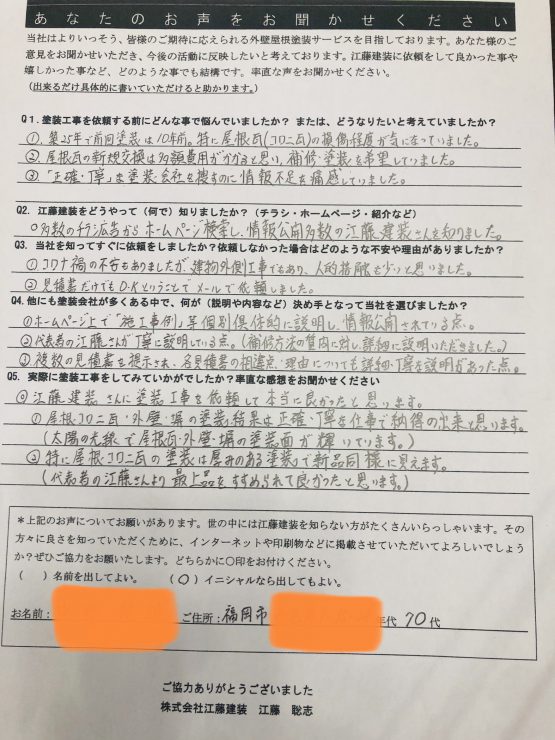 あなたのお声をお聞かせください
当社はよりいっそう、皆様のご期待に応えられる外壁屋根塗装サービスを目指しております。あなた様のご
意見をお聞かせいただき、今後の活動に反映したいと考えております。江藤建装に依頼をして良かった事や
嬉しかった事など、どのような事でも結構です。率直な声をお聞かせください。
(出来るだけ具体的に書いていただけると助かります。)
Q1.塗装工事を依頼する前にどんな事で悩んでいましたか? または、どうなりたいと考えていましたか?
①.築25年で前回塗装は10年前。特に屋根瓦(コロニ瓦)の損傷程度が気になっていました。
②.屋根瓦の新規交換は多額費用がかかると思い、補修・塗装を希望していました。
③.「正確・丁寧」な塗装会社を捜すのに情報不足を痛感していました。
Q2. 江藤建装をどうやって(何で)知りましたか?(チラシ・ホームページ・紹介など)
○多数のチラシ広告からホームページ検索し、情報公開多数の江藤建装さんを知りました。
Q3. 当社を知ってすぐに依頼をしましたか?依頼しなかった場合はどのような不安や理由がありましたか?
①コロナ禍の不安もありましたが、建物外側工事でもあり、人的接触も少いと思いました。
②見積書だけでもO・Kということでメールで依頼しました。
Q4.他にも塗装会社が多くある中で、何が(説明や内容など)決め手となって当社を選びましたか?
①ホームページ上で「施工事例」等個別具体的に説明し、情報公開されている点。
②代表者の江藤さんが丁寧に説明している点。(補修方法の質問に対し、詳細に説明いただきました。)
③複数の見積書を提示され、各見積書の相違点・理由についても詳細・丁寧な説明があった点。
Q5. 実際に塗装工事をしてみていかがでしたか?率直な感想をお聞かせください
◎江藤建装さんに塗装工事を依頼して本当に良かったと思います。
①屋根・コロニ瓦・外壁・塀の塗装結果は正確・丁寧な仕事で納得の出来と思います。
(太陽の光線で屋根面・外壁・塀の塗装面が輝いています。)
②特に屋根・コロニ瓦の塗装は厚みのある塗装で新品同様に見えます。
(代表者の江藤さんより最上品をすすめられて良かったと思います。)
*上記のお声についてお願いがあります。世の中には江藤建装を知らない方がたくさんいらっしゃいます。その
方々に良さを知っていただくために、インターネットや印刷物などに掲載させていただいてよろしいでしょう
か?ぜひご協力をお願いします。どちらかに〇印をお付けください。
( )名前を出してよい。 (〇)イニシャルなら出してもよい。
お名前: ご住所:福岡市 年代 70代
ご協力ありがとうございました
株式会社江藤建装 江藤 聡志